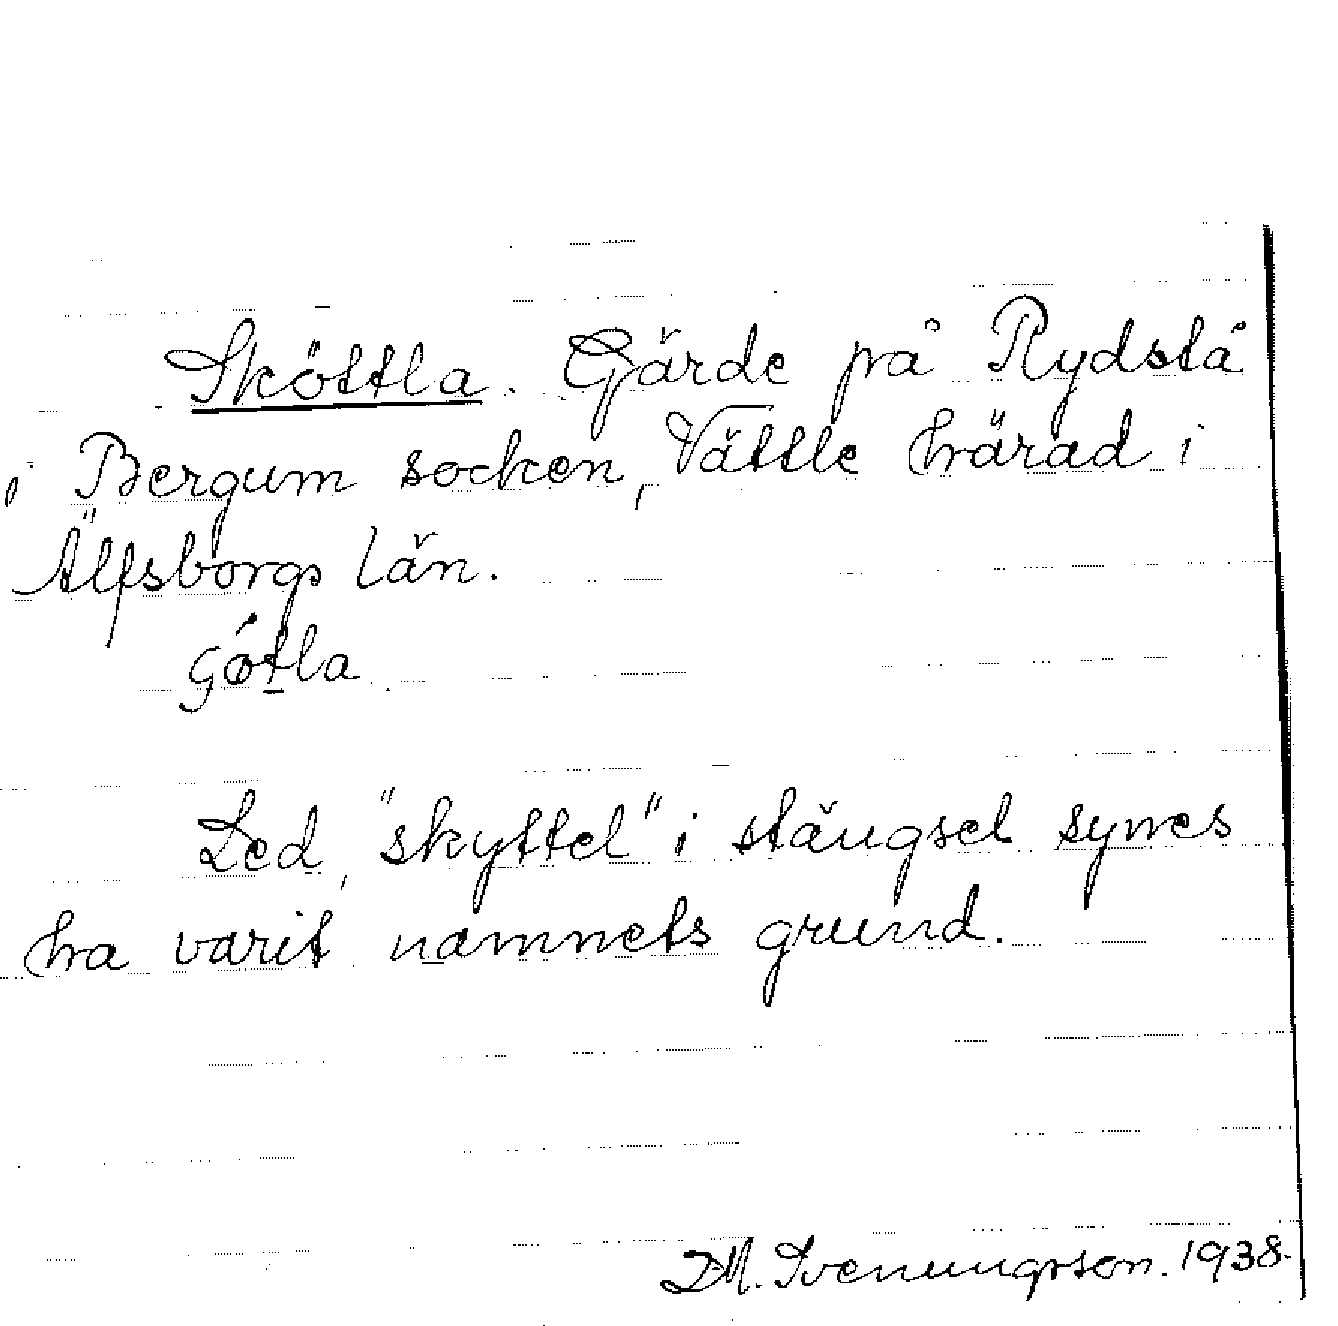 Sköttla. Gärde på Rydstå
i Bergum socken, Vättle härad i
Älfsborgs län.
Led, "skyttel" i stängsel synes
ha varit namnets grund.
D.M. Svenungsson. 1938.